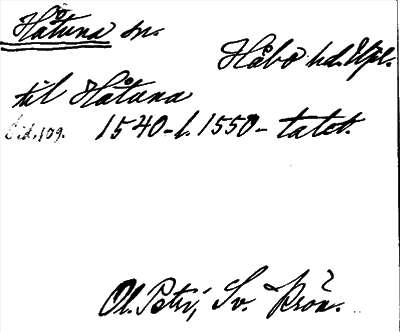 Håtuna sn.
Håbo hd. Upl.
til Håtuna
sid. 109. 1540-l. 1550-talet.
Ol. Petri, Sv. Krön.